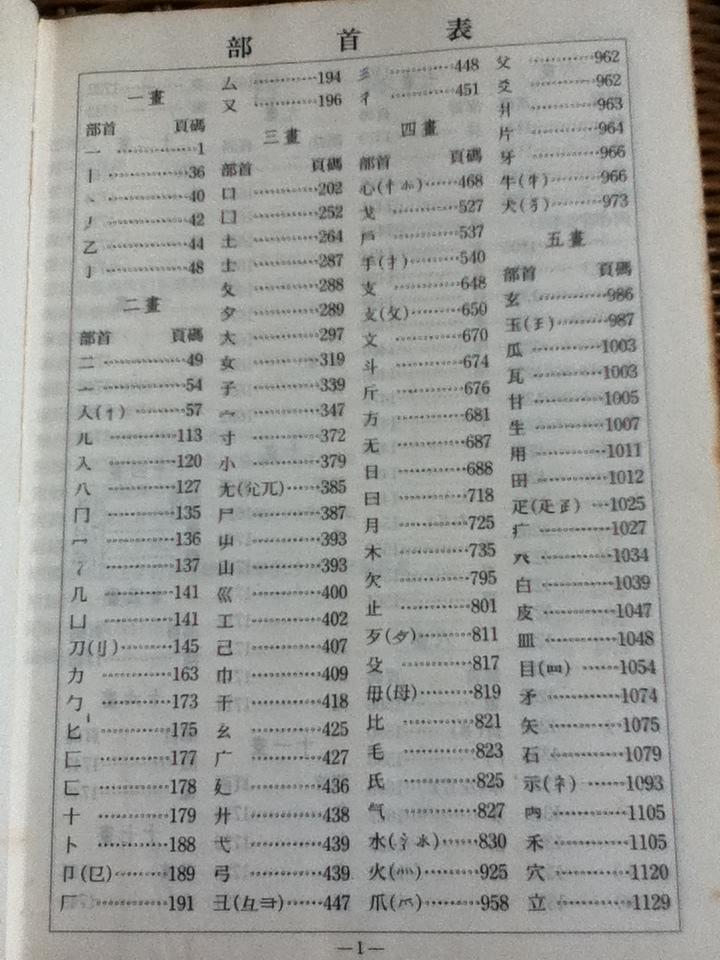 部首表
一畫
部首 頁碼
一 …………1
丨 …………36
丶 …………40
丿 …………42
乙 …………44
亅 …………48
二畫
部首 頁碼
二 …………49
亠 …………54
人(亻) …………57
儿 …………113
入 …………120
八 …………127
冂 …………135
冖 …………136
冫 …………137
几 …………141
凵 …………141
刀(刂) …………145
力 …………163
勹 …………173
匕 …………175
匚 …………177
匸 …………178
十 …………179
卜 …………188
卩(㔾) …………189
厂 …………191
厶 …………194
又 …………196
三畫
部首 頁碼
口 …………202
囗 …………252
土 …………264
士 …………287
夊 …………288
夕 …………289
大 …………297
女 …………319
子 …………339
宀 …………347
寸 …………372
小 …………379
尢(尣兀) ……385
尸 …………387
屮 …………393
山 …………393
巛 …………400
工 …………402
己 …………407
巾 …………409
干 …………418
幺 …………425
广 …………427
廴 …………436
廾 …………438
弋 …………439
弓 …………439
彐(彑⺕) ……447
彡 …………448
彳 …………451
四畫
部首 頁碼
心(忄⺗) ……468
戈 …………527
戶 …………537
手(扌) …………540
支 …………648
攴(攵) …………650
文 …………670
斗 …………674
斤 …………676
方 …………681
无 …………687
日 …………688
曰 …………718
月 …………725
木 …………735
欠 …………795
止 …………801
歹(歺) …………811
殳 …………817
毋(母) …………819
比 …………821
毛 …………823
氏 …………825
气 …………827
水(氵氺) ……830
火(灬) …………925
爪(爫) …………958
父 …………962
爻 …………962
爿 …………963
片 …………964
牙 …………966
牛(牜) …………966
犬(犭) …………973
五畫
部首 頁碼
玄 …………986
玉(王) …………987
瓜 …………1003
瓦 …………1003
甘 …………1005
生 …………1007
用 …………1011
田 …………1012
疋(疋⺪) …1025
疒 …………1027
癶 …………1034
白 …………1039
皮 …………1047
皿 …………1048
目(罒) …………1054
矛 …………1074
矢 …………1075
石 …………1079
示(礻) ……1093
禸 …………1105
禾 …………1105
穴 …………1120
立 …………1129
—1—